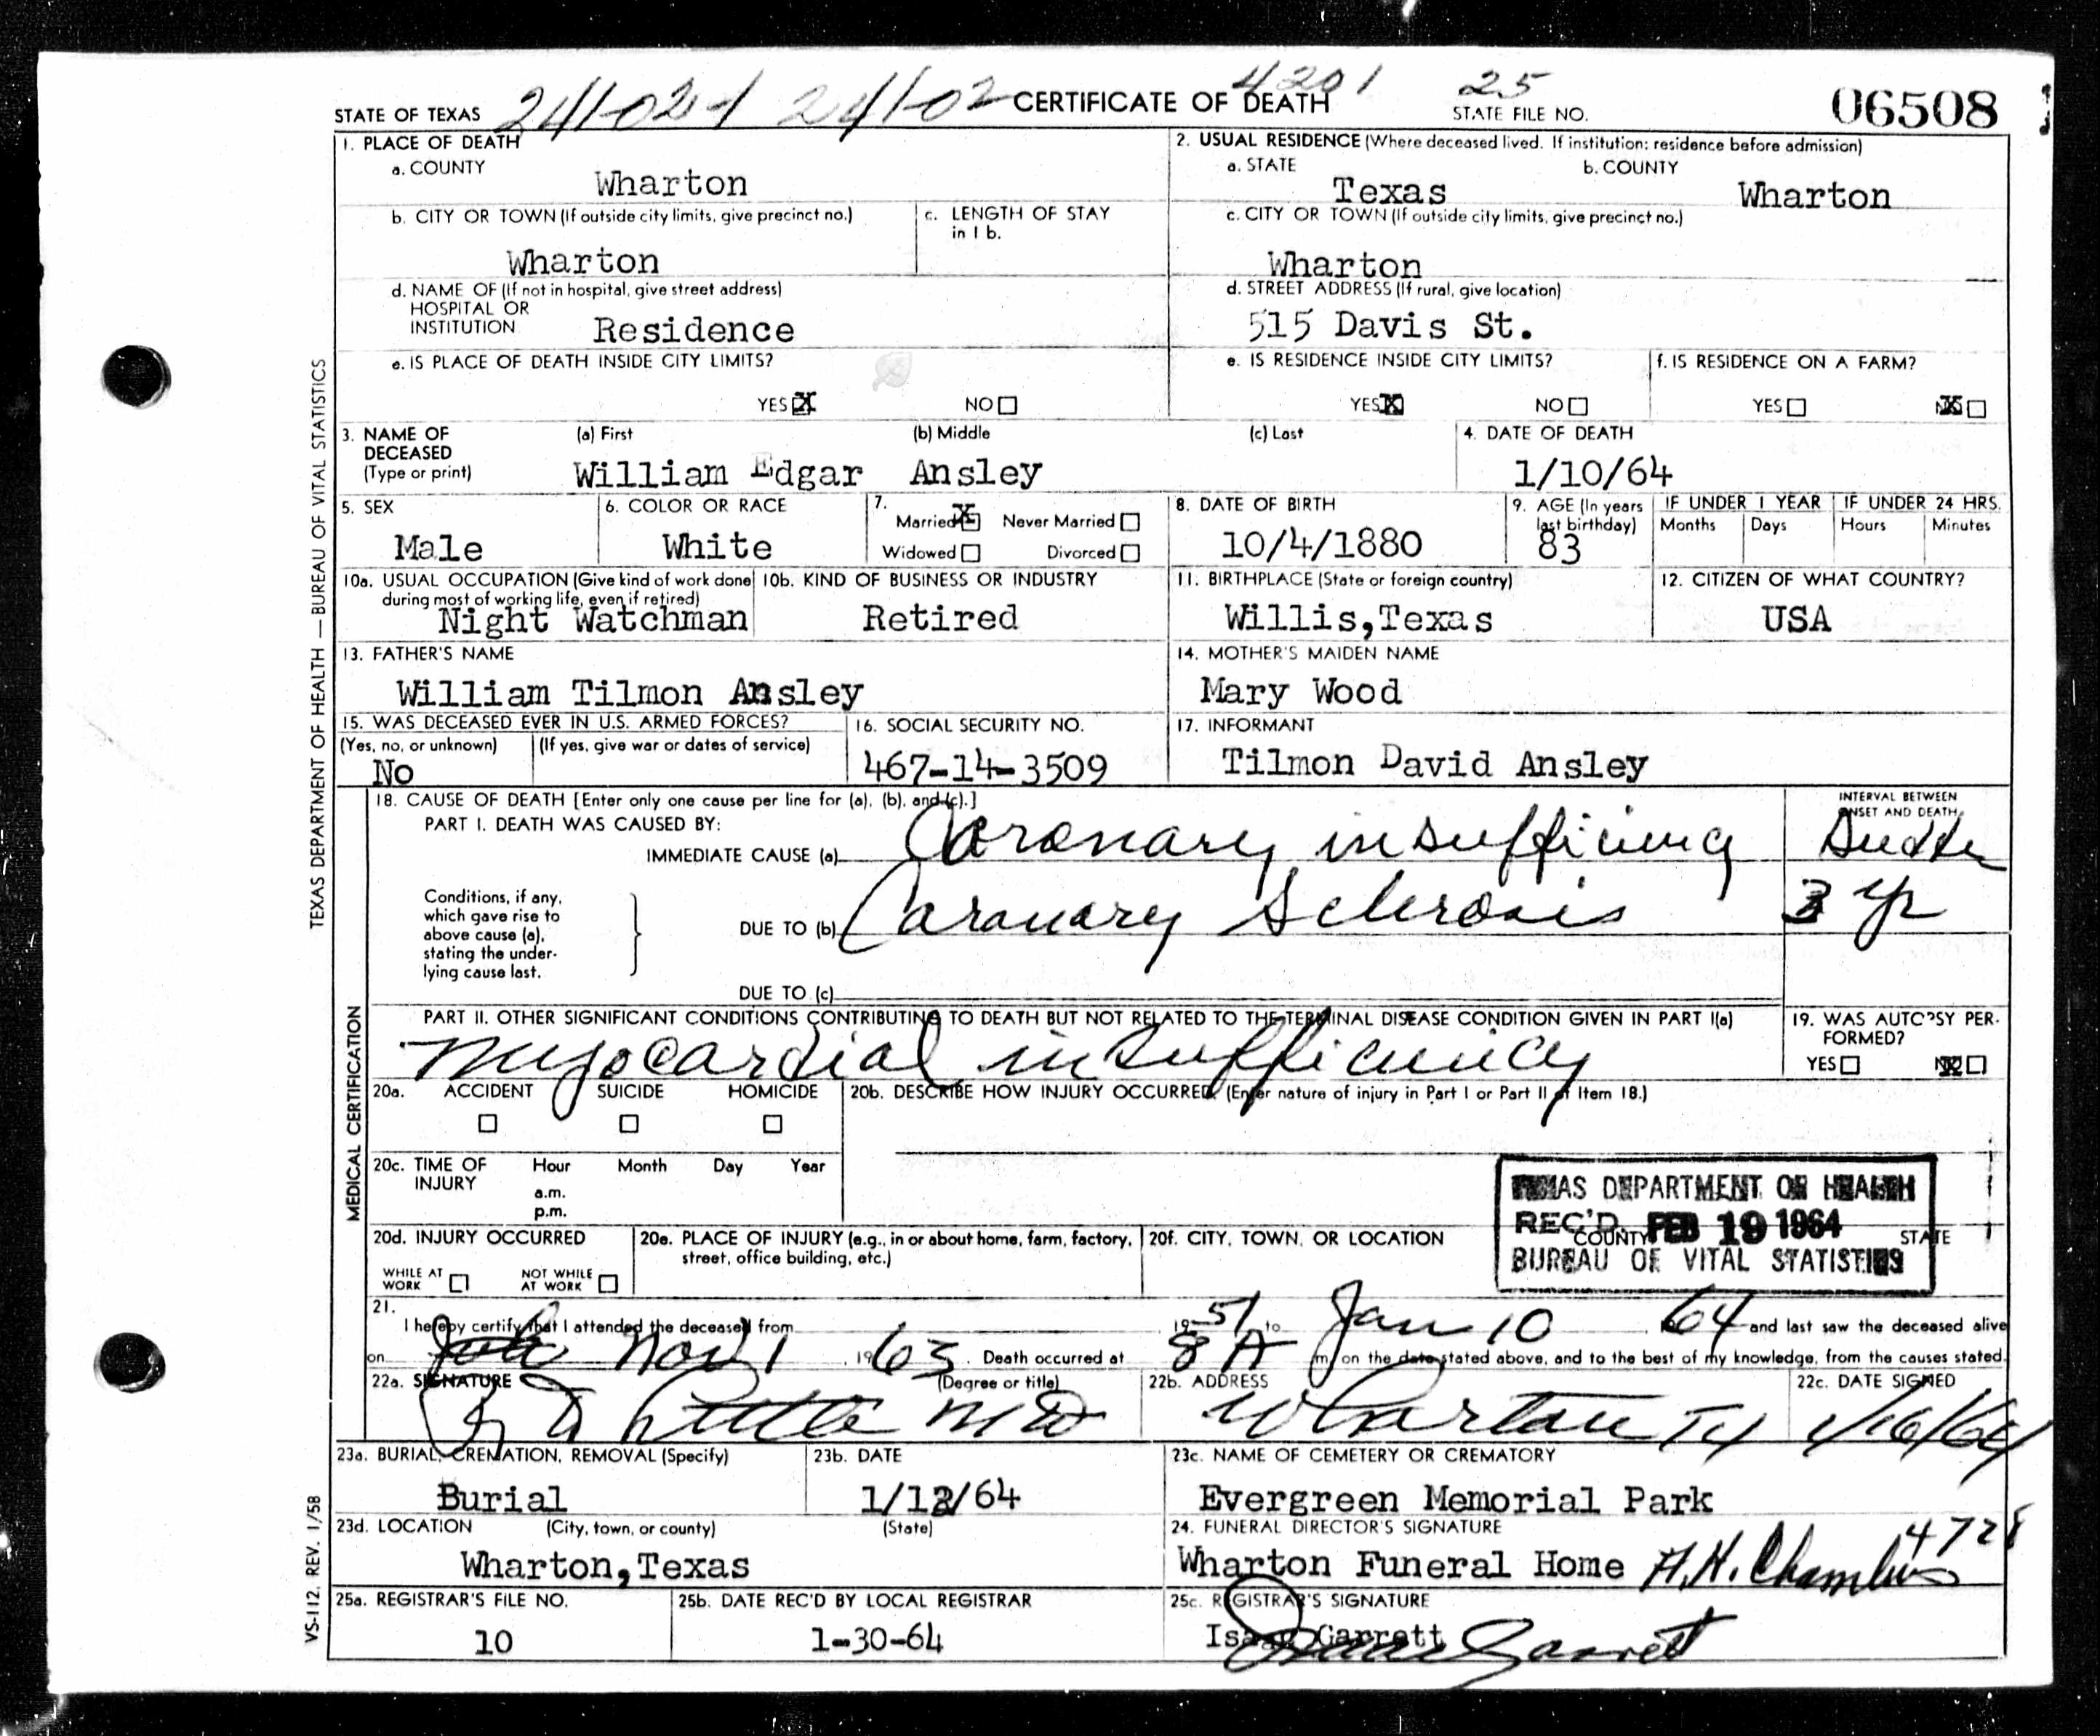 STATE OF TEXAS 241-02-1 241-02 CERTIFICATE OF DEATH 4201 25 STATE FILE NO. 06508
1. PLACE OF DEATH
a. COUNTY
Wharton
2. USUAL RESIDENCE (Where deceased lived. If institution: residence before admission)
a. STATE b. COUNTY
Texas Wharton
b. CITY OR TOWN (If outside city limits, give precinct no.)
Wharton
c. LENGTH OF STAY
in 1 b.
c. CITY OR TOWN (If outside city limits, give precinct no.)
Wharton
d. NAME OF (If not in hospital, give street address)
HOSPITAL OR
INSTITUTION Residence
d. STREET ADDRESS (If rural, give location)
515 Davis St.
e. IS PLACE OF DEATH INSIDE CITY LIMITS?
YES X NO
e. IS RESIDENCE INSIDE CITY LIMITS?
YES X NO
f. IS RESIDENCE ON A FARM?
YES NO
3. NAME OF
DECEASED
(Type or print)
(a) First (b) Middle (c) Last
William Edgar Ansley
4. DATE OF DEATH
1/10/64
5. SEX
Male
6. COLOR OR RACE
White
7.
Married X Never Married
Widowed Divorced
8. DATE OF BIRTH
10/4/1880
9. AGE (In years
last birthday)
83
IF UNDER 1 YEAR IF UNDER 24 HRS.
Months Days Hours Minutes
10a. USUAL OCCUPATION (Give kind of work done
during most of working life, even if retired)
Night Watchman
10b. KIND OF BUSINESS OR INDUSTRY
Retired
11. BIRTHPLACE (State or foreign country)
Willis,Texas
12. CITIZEN OF WHAT COUNTRY?
USA
13. FATHER'S NAME
William Tilmon Ansley
14. MOTHER'S MAIDEN NAME
Mary Wood
15. WAS DECEASED EVER IN U.S. ARMED FORCES?
(Yes, no, or unknown) (If yes, give war or dates of service)
No
16. SOCIAL SECURITY NO.
467-14-3509
17. INFORMANT
Tilmon David Ansley
18. CAUSE OF DEATH [Enter only one cause per line for (a), (b), and (c).]
PART I. DEATH WAS CAUSED BY:
IMMEDIATE CAUSE (a) Coronary insufficiency
INTERVAL BETWEEN
ONSET AND DEATH
Sudden
Conditions, if any,
which gave rise to
above cause (a),
stating the under-
lying cause last.
DUE TO (b) Coronary Sclerosis
3 yr
DUE TO (c)
PART II. OTHER SIGNIFICANT CONDITIONS CONTRIBUTING TO DEATH BUT NOT RELATED TO THE TERMINAL DISEASE CONDITION GIVEN IN PART I(a)
myocardial insufficiency
19. WAS AUTOPSY PER-
FORMED?
YES NO
20a. ACCIDENT SUICIDE HOMICIDE
20b. DESCRIBE HOW INJURY OCCURRED. (Enter nature of injury in Part I or Part II of Item 18.)
20c. TIME OF
INJURY
Hour Month Day Year
a.m.
p.m.
TEXAS DEPARTMENT OF HEALTH
REC'D FEB 19 1964
BUREAU OF VITAL STATISTICS
20d. INJURY OCCURRED
WHILE AT
WORK
NOT WHILE
AT WORK
20e. PLACE OF INJURY (e.g., in or about home, farm, factory,
street, office building, etc.)
20f. CITY, TOWN, OR LOCATION COUNTY STATE
21.
I hereby certify that I attended the deceased from 1951 to Jan 10 64 and last saw the deceased alive
on Nov 1, 1963. Death occurred at 8 A m on the date stated above, and to the best of my knowledge, from the causes stated.
22a. SIGNATURE (Degree or title)
MD
22b. ADDRESS
Wharton Tx
22c. DATE SIGNED
1/16/64
23a. BURIAL, CREMATION, REMOVAL (Specify)
Burial
23b. DATE
1/12/64
23c. NAME OF CEMETERY OR CREMATORY
Evergreen Memorial Park
23d. LOCATION (City, town, or county) (State)
Wharton,Texas
24. FUNERAL DIRECTOR'S SIGNATURE
Wharton Funeral Home H.H. Chambers 4728
25a. REGISTRAR'S FILE NO.
10
25b. DATE REC'D BY LOCAL REGISTRAR
1-30-64
25c. REGISTRAR'S SIGNATURE
Isaac Garrett
Isaac Garrett
TEXAS DEPARTMENT OF HEALTH — BUREAU OF VITAL STATISTICS
MEDICAL CERTIFICATION
VS-112. REV. 1/58